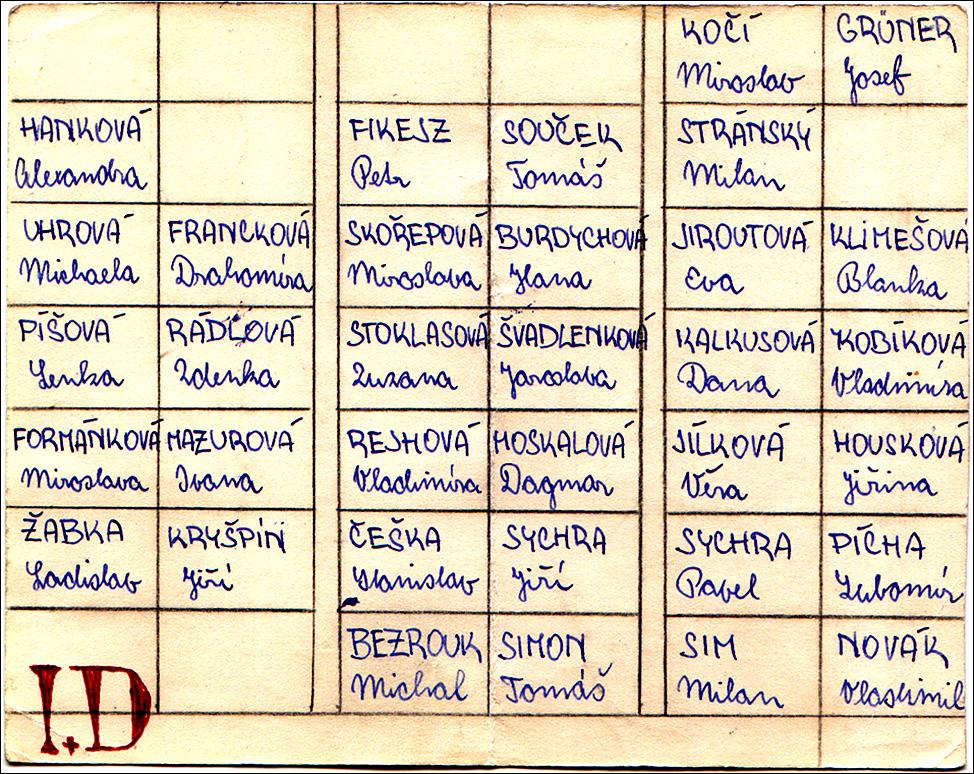 KOČÍ GRÜNER
Miroslav Josef
HANKOVÁ FIKEJZ SOUČEK STRÁNSKÝ
Alexandra Petr Tomáš Milan
UHROVÁ FRANCKOVÁ SKOŘEPOVÁ BURDYCHOVÁ JIROUTOVÁ KLIMEŠOVÁ
Michaela Drahomíra Miroslava Hana Eva Blanka
PÍŠOVÁ RÁDLOVÁ STOKLASOVÁ ŠVADLENKOVÁ KALKUSOVÁ KOBÍKOVÁ
Lenka Zdenka Zuzana Jaroslava Dana Vladimíra
FORMÁNKOVÁ MAZUROVÁ REJHOVÁ MOSKALOVÁ JÍLKOVÁ HOUSKOVÁ
Miroslava Ivana Vladimíra Dagmar Věra Jiřina
ŽABKA KRYŠPÍN ČEŠKA SYCHRA SYCHRA PÍCHA
Ladislav Jiří Stanislav Jiří Pavel Lubomír
BEZROUK SIMON SIM NOVÁK
Michal Tomáš Milan Vlastimil
I.D